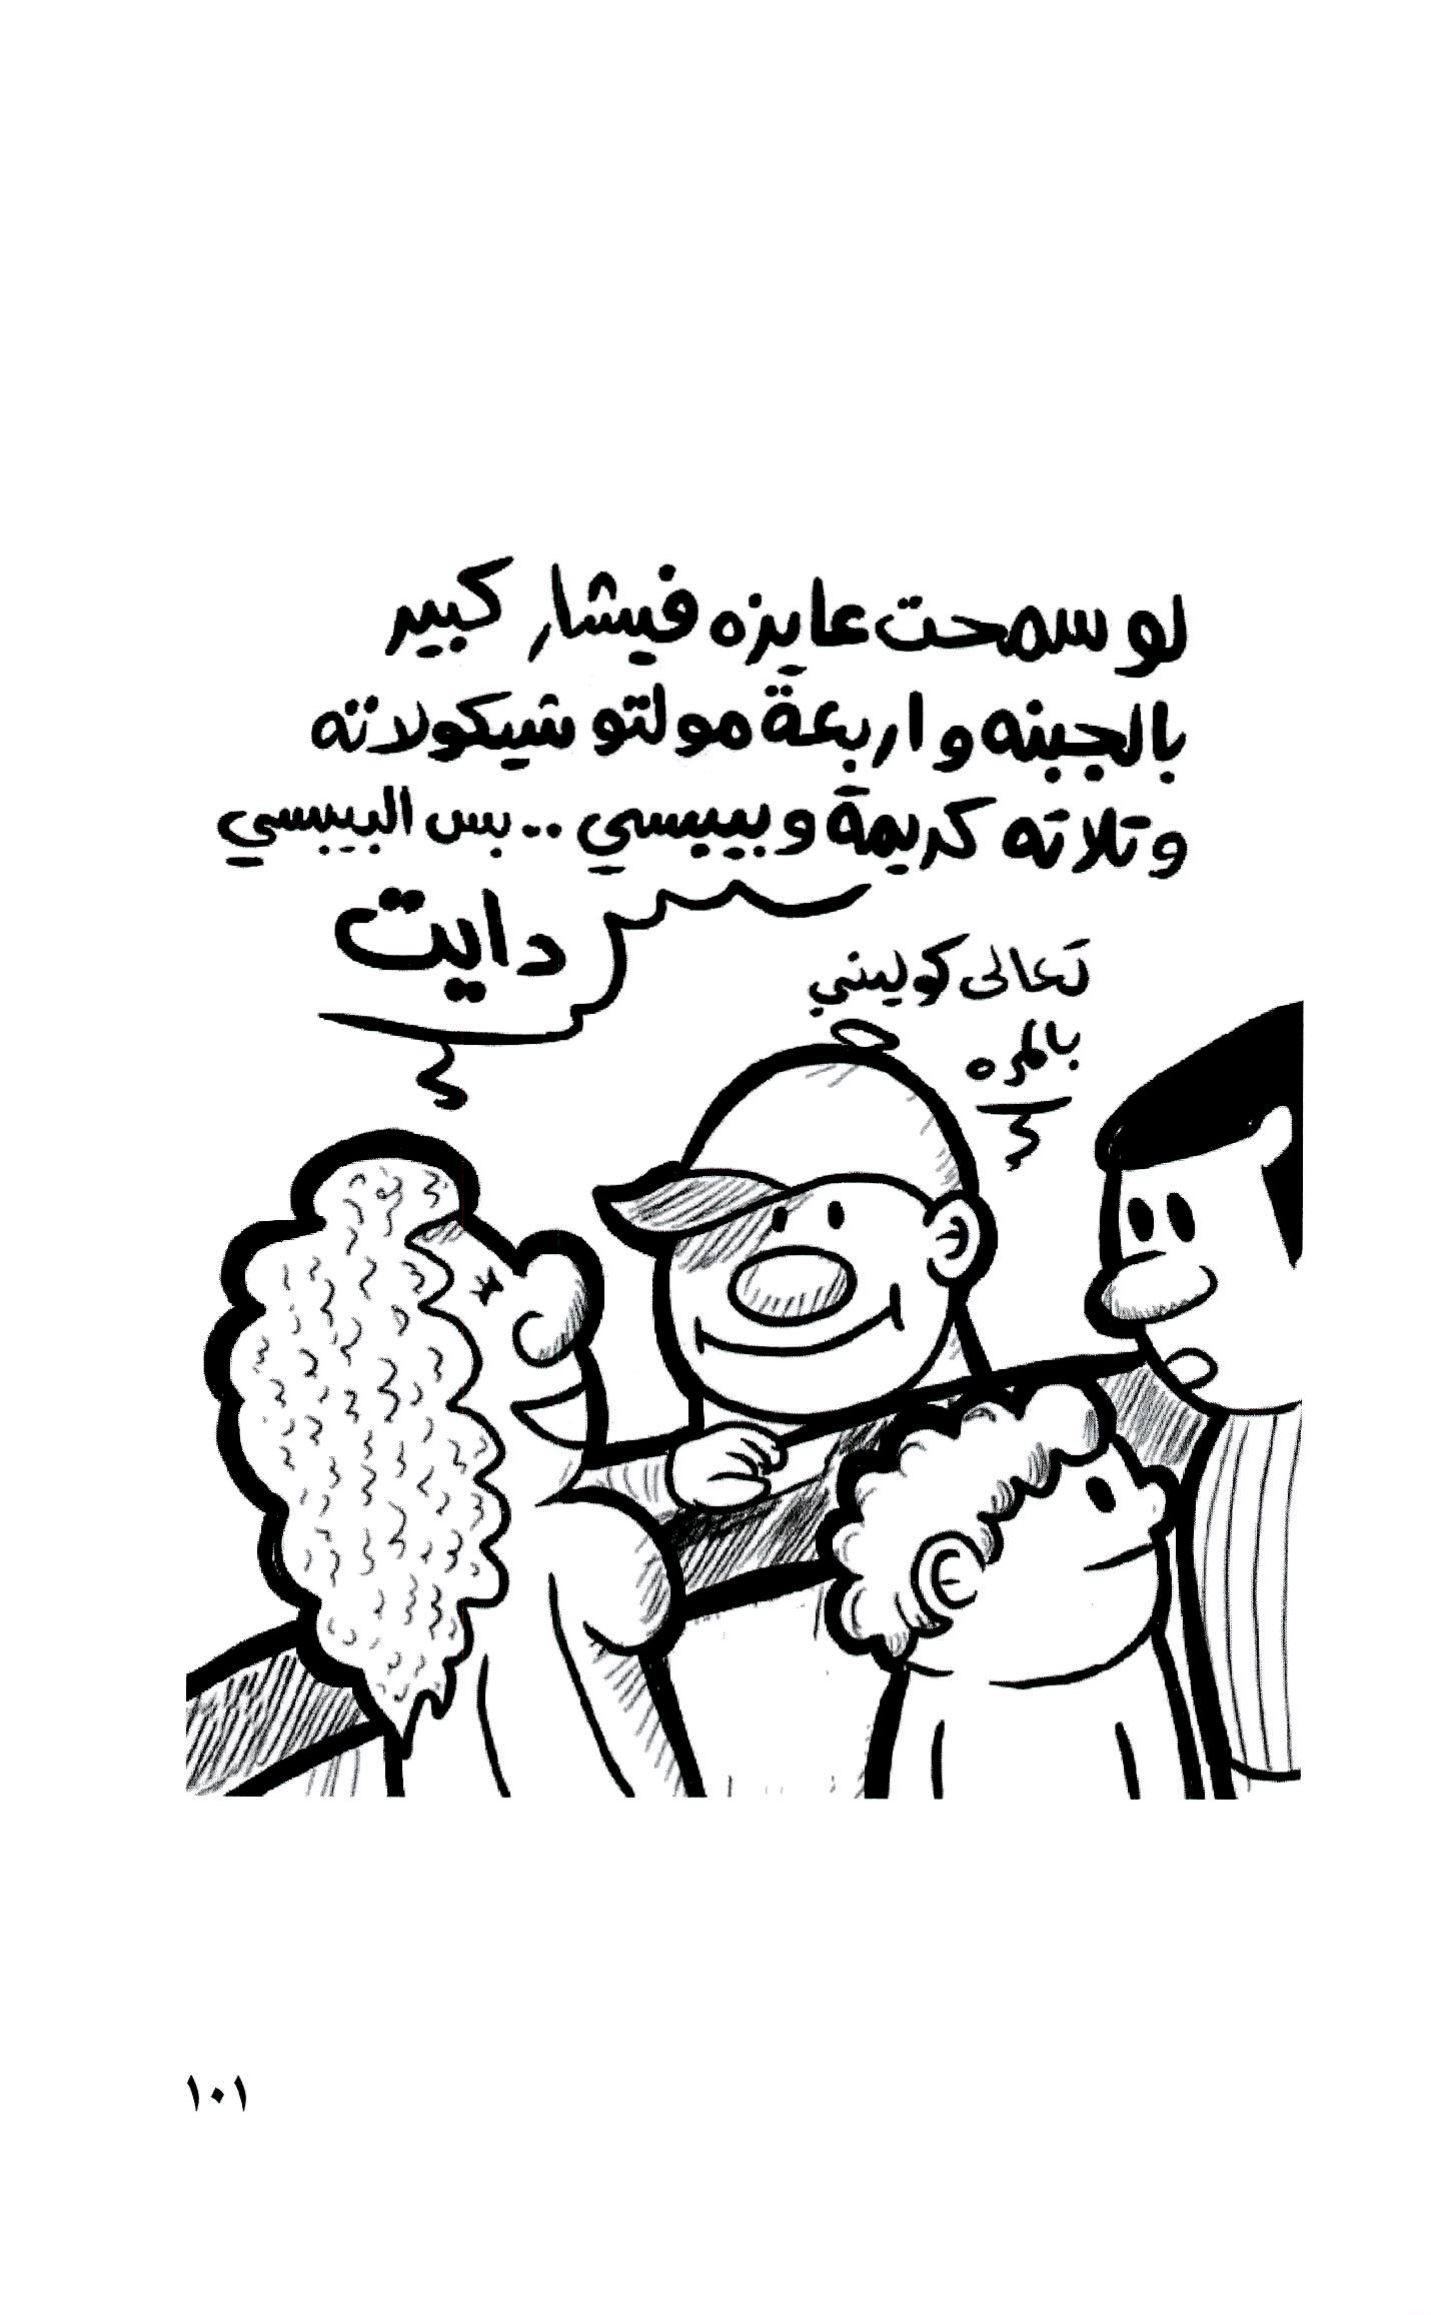 لو سمحت عايزه فيشار كبير
بالجبنه و اربعة مولتو شيكولاته
و تلاته كريمة و بيبسي .. بس البيبسي
دايت
تعالى كوليني
بالمره
١٠١